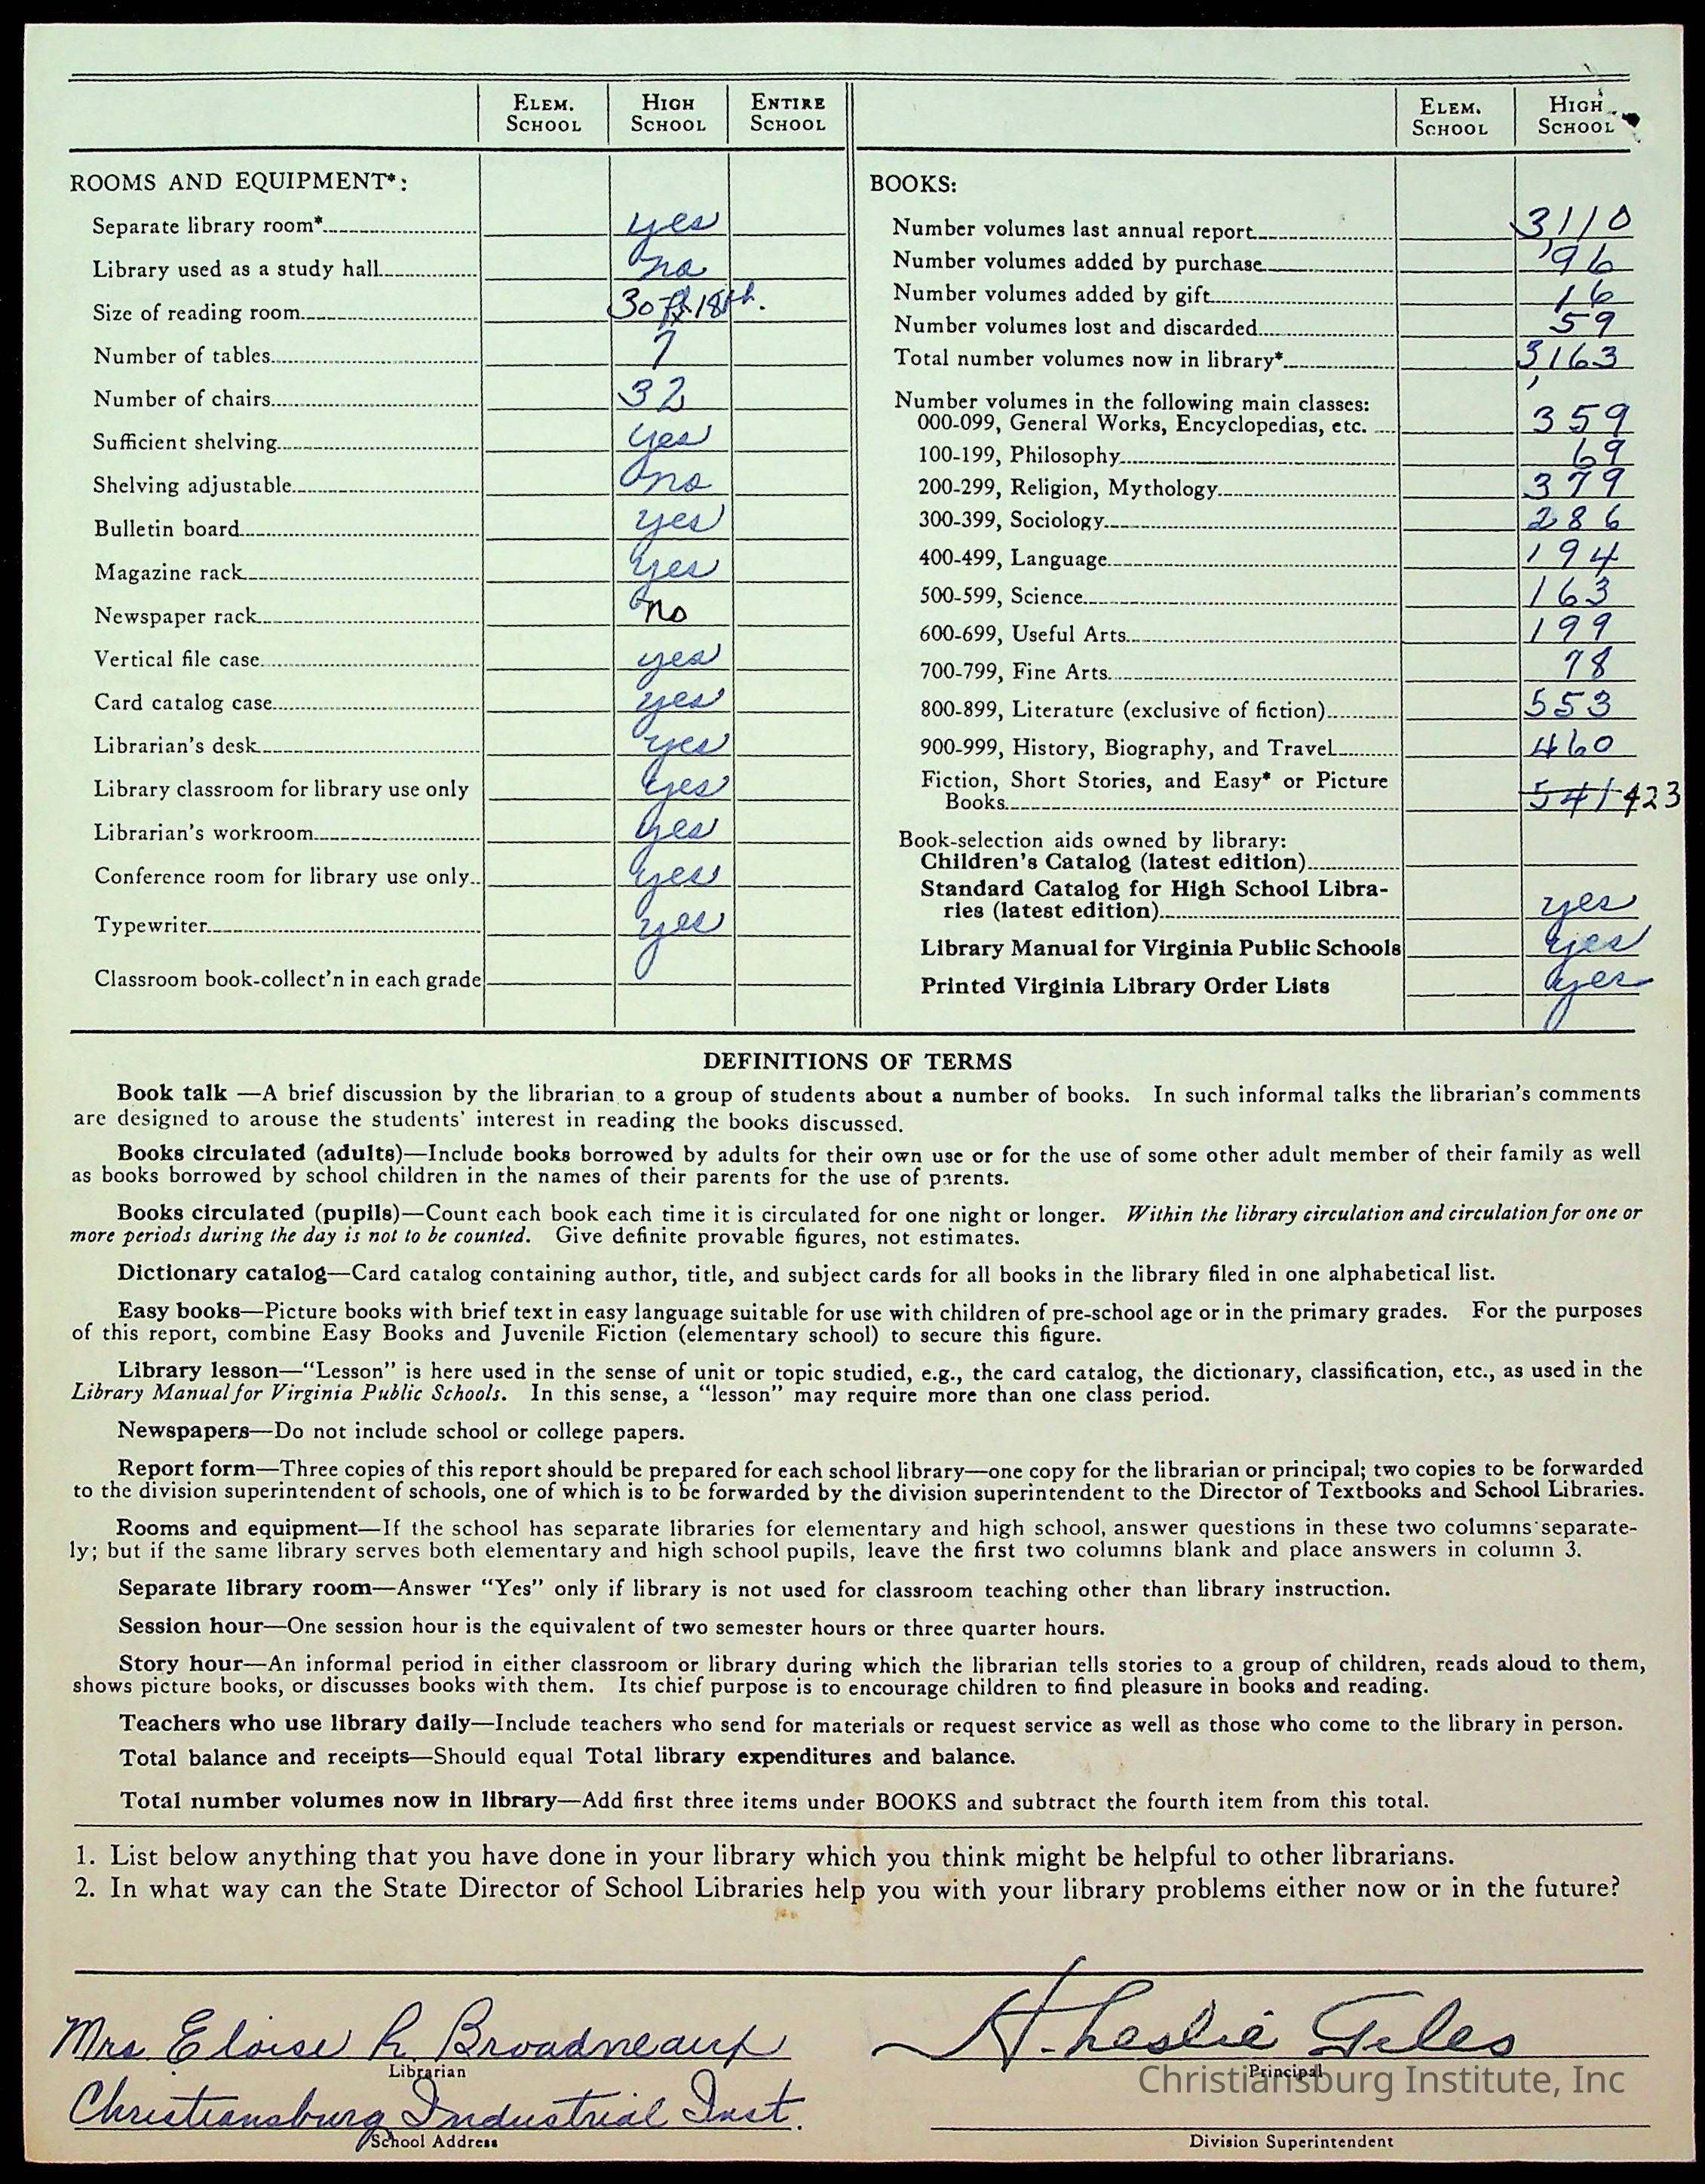 ELEM. SCHOOL HIGH SCHOOL ENTIRE SCHOOL
ROOMS AND EQUIPMENT*:
Separate library room* yes
Library used as a study hall no
Size of reading room 30 ft x 18 ft.
Number of tables 7
Number of chairs 32
Sufficient shelving yes
Shelving adjustable no
Bulletin board yes
Magazine rack yes
Newspaper rack no
Vertical file case yes
Card catalog case yes
Librarian's desk yes
Library classroom for library use only yes
Librarian's workroom yes
Conference room for library use only yes
Typewriter yes
Classroom book-collect'n in each grade
ELEM. SCHOOL HIGH SCHOOL
BOOKS:
Number volumes last annual report 3110
Number volumes added by purchase 96
Number volumes added by gift 16
Number volumes lost and discarded 59
Total number volumes now in library* 3163
Number volumes in the following main classes:
000-099, General Works, Encyclopedias, etc. 359
100-199, Philosophy 69
200-299, Religion, Mythology 379
300-399, Sociology 286
400-499, Language 194
500-599, Science 163
600-699, Useful Arts 199
700-799, Fine Arts 78
800-899, Literature (exclusive of fiction) 553
900-999, History, Biography, and Travel 460
Fiction, Short Stories, and Easy* or Picture
Books 541 423
Book-selection aids owned by library:
Children's Catalog (latest edition)
Standard Catalog for High School Libra-
ries (latest edition) yes
Library Manual for Virginia Public Schools yes
Printed Virginia Library Order Lists yes
DEFINITIONS OF TERMS
Book talk —A brief discussion by the librarian to a group of students about a number of books. In such informal talks the librarian's comments
are designed to arouse the students' interest in reading the books discussed.
Books circulated (adults)—Include books borrowed by adults for their own use or for the use of some other adult member of their family as well
as books borrowed by school children in the names of their parents for the use of parents.
Books circulated (pupils)—Count each book each time it is circulated for one night or longer. Within the library circulation and circulation for one or
more periods during the day is not to be counted. Give definite provable figures, not estimates.
Dictionary catalog—Card catalog containing author, title, and subject cards for all books in the library filed in one alphabetical list.
Easy books—Picture books with brief text in easy language suitable for use with children of pre-school age or in the primary grades. For the purposes
of this report, combine Easy Books and Juvenile Fiction (elementary school) to secure this figure.
Library lesson—“Lesson” is here used in the sense of unit or topic studied, e.g., the card catalog, the dictionary, classification, etc., as used in the
Library Manual for Virginia Public Schools. In this sense, a “lesson” may require more than one class period.
Newspapers—Do not include school or college papers.
Report form—Three copies of this report should be prepared for each school library—one copy for the librarian or principal; two copies to be forwarded
to the division superintendent of schools, one of which is to be forwarded by the division superintendent to the Director of Textbooks and School Libraries.
Rooms and equipment—If the school has separate libraries for elementary and high school, answer questions in these two columns separate-
ly; but if the same library serves both elementary and high school pupils, leave the first two columns blank and place answers in column 3.
Separate library room—Answer “Yes” only if library is not used for classroom teaching other than library instruction.
Session hour—One session hour is the equivalent of two semester hours or three quarter hours.
Story hour—An informal period in either classroom or library during which the librarian tells stories to a group of children, reads aloud to them,
shows picture books, or discusses books with them. Its chief purpose is to encourage children to find pleasure in books and reading.
Teachers who use library daily—Include teachers who send for materials or request service as well as those who come to the library in person.
Total balance and receipts—Should equal Total library expenditures and balance.
Total number volumes now in library—Add first three items under BOOKS and subtract the fourth item from this total.
1. List below anything that you have done in your library which you think might be helpful to other librarians.
2. In what way can the State Director of School Libraries help you with your library problems either now or in the future?
Mrs. Eloise R. Broadneaux
Librarian
A. Leslie Giles
Principal
Christiansburg Institute, Inc
Christiansburg Industrial Inst.
School Address
Division Superintendent